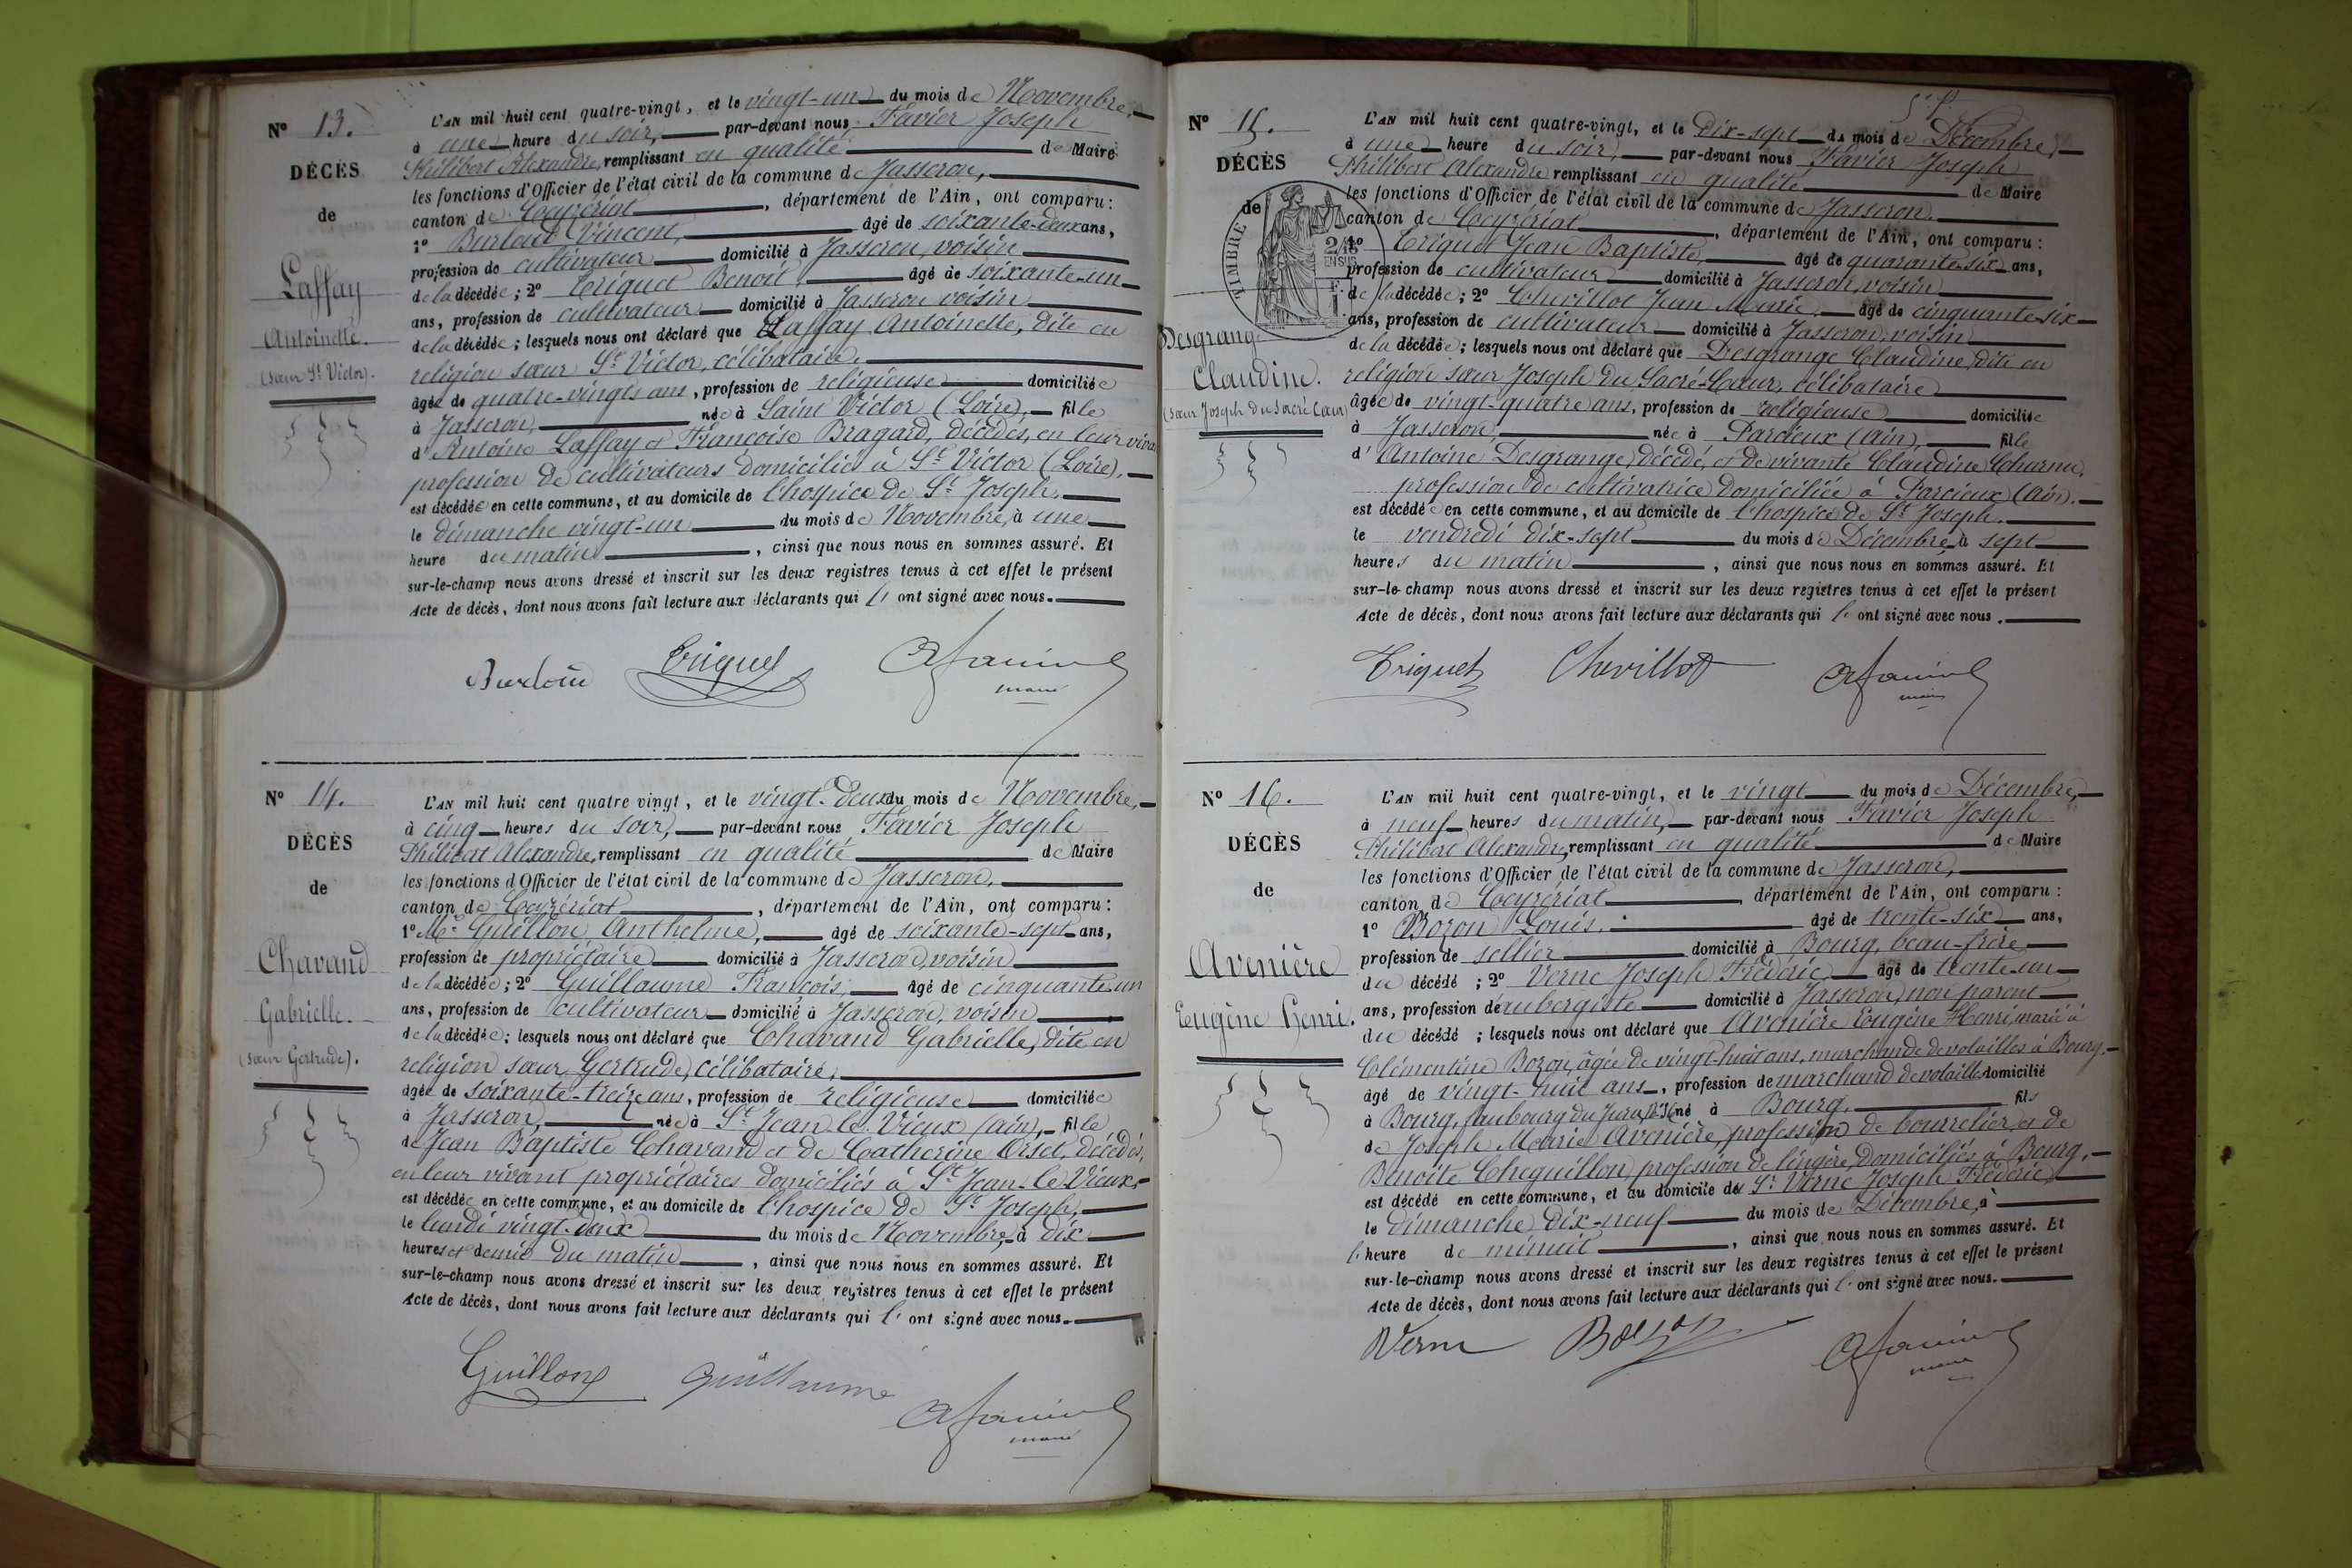 Nº 13.
DÉCÈS
de
Laffay
Antoinette.
(Sœur St Victor).
L'AN mil huit cent quatre-vingt, et le vingt-un du mois de Novembre,
à une heure du soir, par-devant nous Favier Joseph
Philibert Alexandre, remplissant en qualité de Maire
les fonctions d'Officier de l'état civil de la commune de Jasseron,
canton de Ceyzériat, département de l'Ain, ont comparu :
1º Burloud Vincent, âgé de soixante-deux ans,
profession de cultivateur domicilié à Jasseron, voisin
de la décédée ; 2º Triquet Benoit, âgé de soixante-un
ans, profession de cultivateur domicilié à Jasseron voisin
de la décédée ; lesquels nous ont déclaré que Laffay Antoinette, dite en
religion sœur St Victor, célibataire.
âgée de quatre-vingts ans, profession de religieuse domiciliée
à Jasseron, née à Saint Victor (Loire), fille
d'Antoine Laffay et Françoise Bragard, décédés, en leur viva
profession de cultivateurs domiciliés à St Victor (Loire),
est décédée en cette commune, et au domicile de l'hospice de St Joseph,
le dimanche vingt-un du mois de Novembre, à une
heure du matin, ainsi que nous nous en sommes assuré. Et
sur-le-champ nous avons dressé et inscrit sur les deux registres tenus à cet effet le présent
Acte de décès, dont nous avons fait lecture aux déclarants qui l' ont signé avec nous.
Triquet
maire
Nº 14.
DÉCÈS
de
Chavand
Gabrielle.
(Sœur Gertrude).
L'AN mil huit cent quatre vingt, et le vingt-deux du mois de Novembre,
à cinq heures du soir, par-devant nous Favier Joseph
Philibert Alexandre, remplissant en qualité de Maire
les fonctions d'Officier de l'état civil de la commune de Jasseron,
canton de Ceyzériat, département de l'Ain, ont comparu :
1º Mr Guillon Anthelme, âgé de soixante-sept ans,
profession de propriétaire domicilié à Jasseron, voisin
de la décédée ; 2º Guillaume François, âgé de cinquante-un
ans, profession de cultivateur domicilié à Jasseron, voisin
de la décédée ; lesquels nous ont déclaré que Chavand Gabrielle, dite en
religion sœur Gertrude, célibataire,
âgée de soixante-treize ans, profession de religieuse domiciliée
à Jasseron, née à St Jean-le-Vieux (Ain), fille
de Jean Baptiste Chavand et de Catherine Orset, décédés,
en leur vivant propriétaires domiciliés à St Jean-le-Vieux,
est décédée en cette commune, et au domicile de l'hospice de St Joseph,
le lundi vingt-deux du mois de Novembre, à dix
heures et demie du matin, ainsi que nous nous en sommes assuré. Et
sur-le-champ nous avons dressé et inscrit sur les deux registres tenus à cet effet le présent
Acte de décès, dont nous avons fait lecture aux déclarants qui l' ont signé avec nous.
Guillon Guillaume
maire
Nº 15.
DÉCÈS
de
TIMBRE
Desgrange
Claudine.
(Sœur Joseph du Sacré Cœur)
L'AN mil huit cent quatre-vingt, et le Dix-sept du mois de Décembre,
à une heure du soir, par-devant nous Favier Joseph
Philibert Alexandre remplissant en qualité de Maire
les fonctions d'Officier de l'état civil de la commune de Jasseron.
canton de Ceyzériat, département de l'Ain, ont comparu :
1º Triquet Jean Baptiste, âgé de quarante-six ans,
profession de cultivateur domicilié à Jasseron, voisin
de la décédée ; 2º Chevillot Jean Marie, âgé de cinquante-six
ans, profession de cultivateur domicilié à Jasseron, voisin
de la décédée ; lesquels nous ont déclaré que Desgrange Claudine, dite en
religion sœur Joseph du Sacré-Cœur, célibataire
âgée de vingt-quatre ans, profession de religieuse domiciliée
à Jasseron, née à Parcieux (Ain), fille
d'Antoine Desgrange, décédé, et de vivante Claudine Charme,
profession de cultivatrice domiciliée à Parcieux (Ain).
est décédée en cette commune, et au domicile de l'hospice de St Joseph.
le vendredi dix-sept du mois de Décembre à sept
heures du matin, ainsi que nous nous en sommes assuré. Et
sur-le-champ nous avons dressé et inscrit sur les deux registres tenus à cet effet le présent
Acte de décès, dont nous avons fait lecture aux déclarants qui l' ont signé avec nous.
Triquet Chevillot
maire
Nº 16.
DÉCÈS
de
Avenière
Eugène Henri.
L'AN mil huit cent quatre-vingt, et le vingt du mois de Décembre,
à neuf heures du matin, par-devant nous Favier Joseph
Philibert Alexandre, remplissant en qualité de Maire
les fonctions d'Officier de l'état civil de la commune de Jasseron,
canton de Ceyzériat, département de l'Ain, ont comparu :
1º Bozon Louis. âgé de trente-six ans,
profession de sellier domicilié à Bourg, beau-frère
du décédé ; 2º Verne Joseph Frédéric âgé de trente-un
ans, profession de aubergiste domicilié à Jasseron, non parent
du décédé ; lesquels nous ont déclaré que Avenière Eugène Henri, marié à
Clémentine Bozon, âgée de vingt-huit ans, marchande de volailles à Bourg.
âgé de vingt-huit ans, profession de marchand de volaille domicilié
à Bourg, faubourg du Jura, né à Bourg, fils
de Joseph Marie Avenière, profession de bourrelier, et de
Benoite Cheguillon, profession de lingère, domiciliés à Bourg,
est décédé en cette commune, et au domicile de Sr Verne Joseph Frédéric,
le dimanche dix-neuf du mois de Décembre, à
l'heure de minuit, ainsi que nous nous en sommes assuré. Et
sur-le-champ nous avons dressé et inscrit sur les deux registres tenus à cet effet le présent
Acte de décès, dont nous avons fait lecture aux déclarants qui l' ont signé avec nous.
Verne Bozon
maire